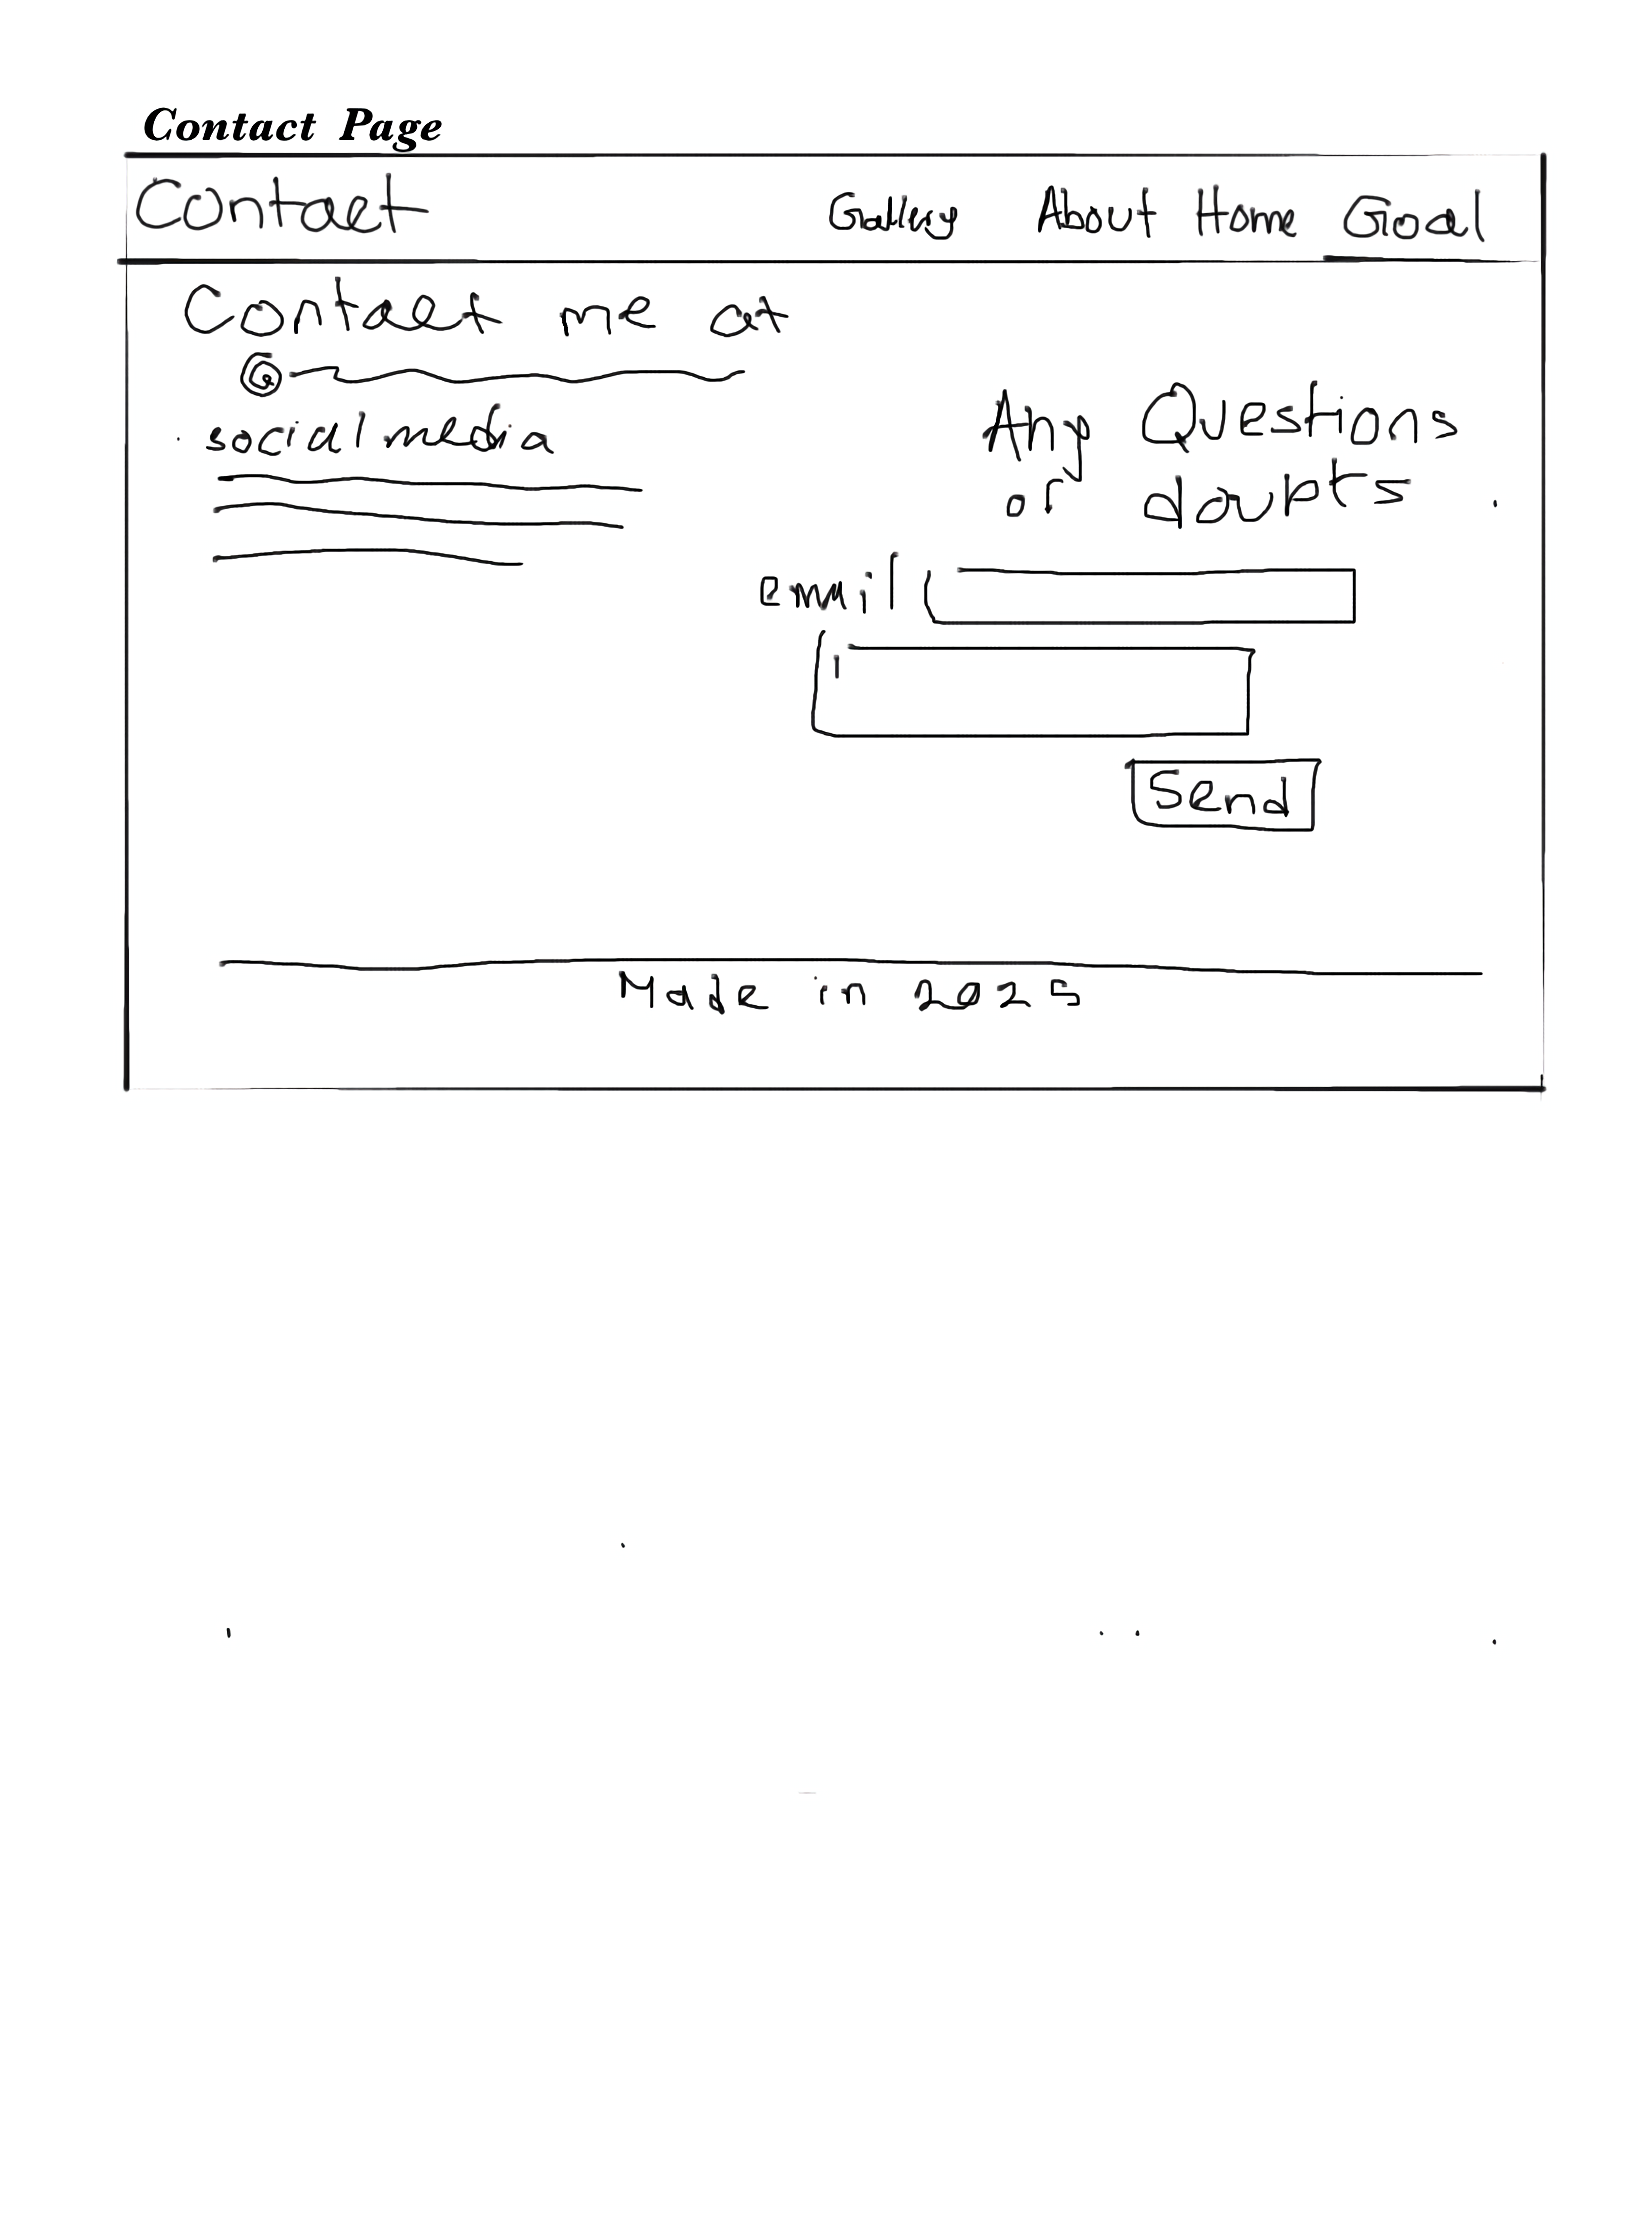 Contact Page
Contact Gallery About Home Goal
Contact me at
@
social media
Any Questions
or doubts
email
Send
Made in 2025